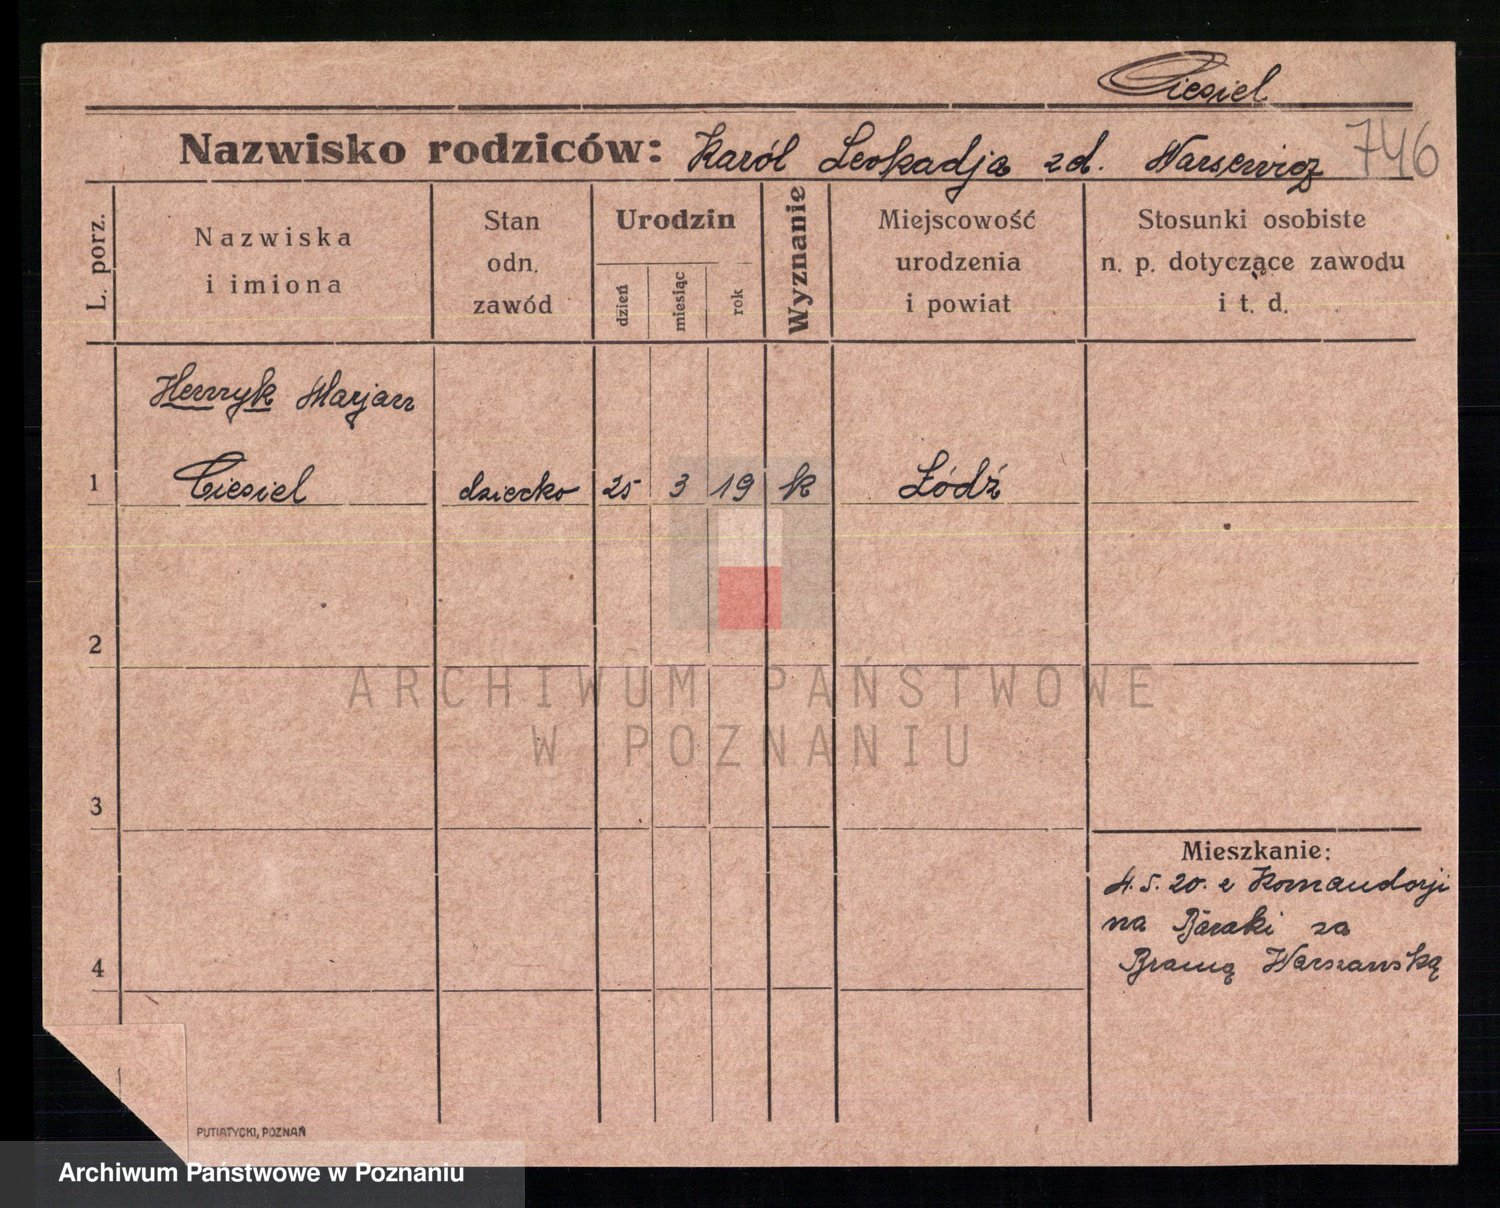 Ciesiel
Nazwisko rodziców: Karól Leokadja zd. Warsewicz 746
L. porz.
Nazwiska
i imiona
Stan
odn.
zawód
Urodzin
dzień
miesiąc
rok
Wyznanie
Miejscowość
urodzenia
i powiat
Stosunki osobiste
n. p. dotyczące zawodu
i t. d.
Henryk Marjan
1 Ciesiel dziecko 25 3 19 k Łódź
2
ARCHIWUM PAŃSTWOWE
W POZNANIU
3
Mieszkanie:
4.5.20. z Komandorji
na Baraki za
Bramą Warszawską
4
PUTIATYCKI, POZNAŃ
Archiwum Państwowe w Poznaniu